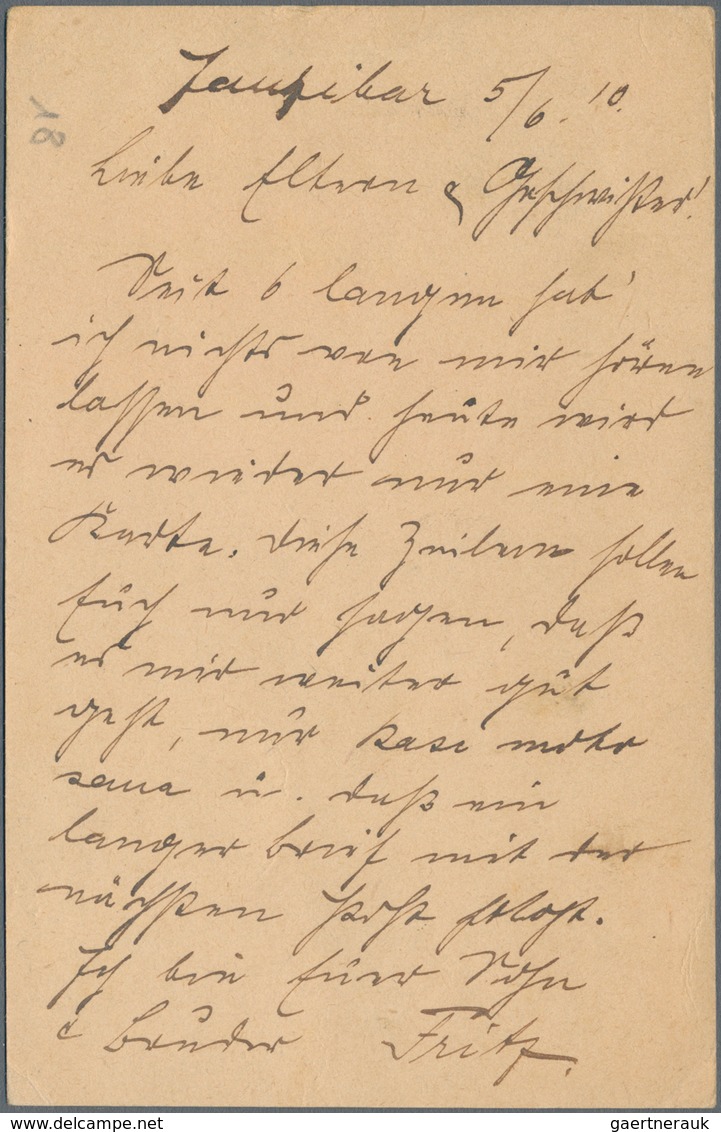 Zanzibar 5/6. 10.
Liebe Eltern & Geschwister!
Seit 6 langem hab'
ich nichts von mir hören
lassen und heute wird
es wieder nur eine
Karte. Diese Zeilen sollen
Euch nur sagen, daß
es mir weiter gut
geht, nur Kasi moto
sana u. daß ein
langer Brief mit der
nächsten Post folgt.
Ich bin Euer Sohn
& Bruder Fritz.
gaertnerauk